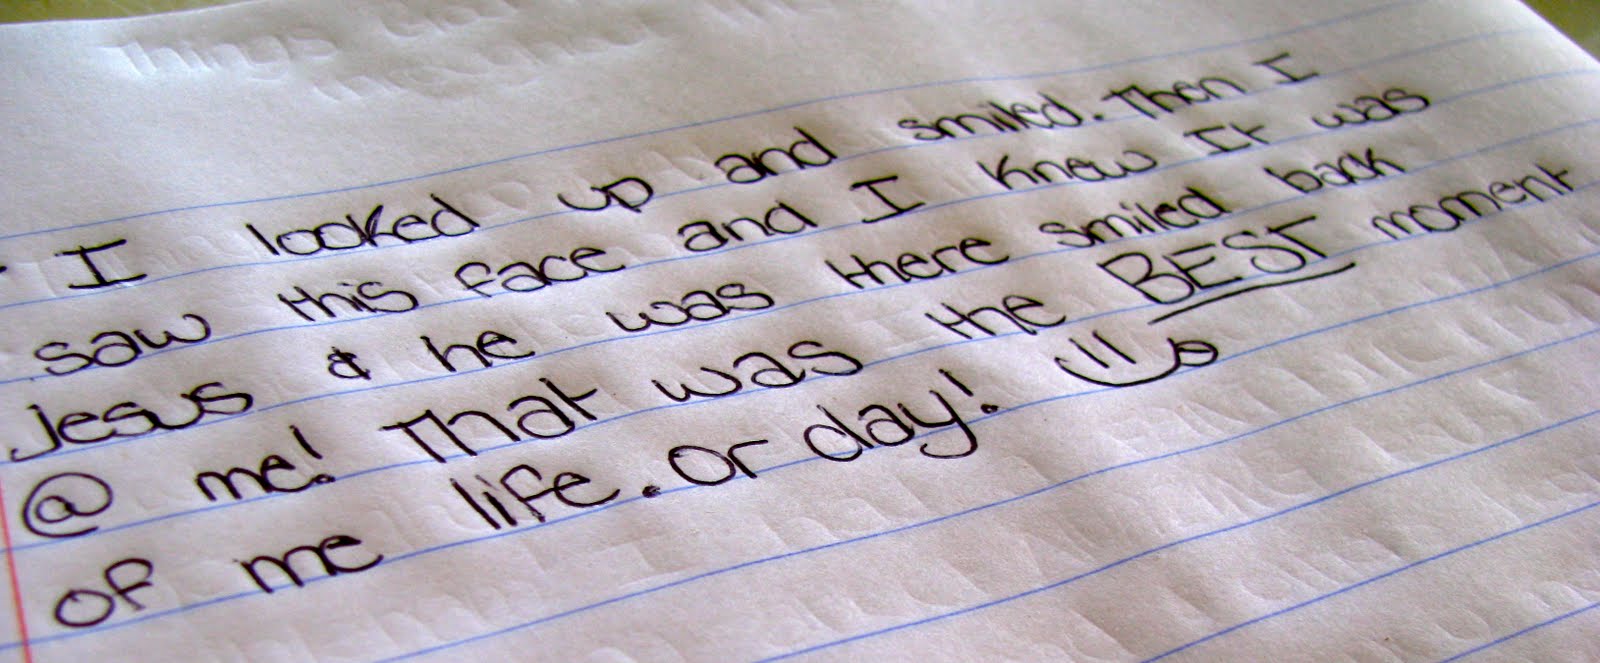 Things
- I looked up and smiled. Then I
saw this face and I knew It was
Jesus & he was there smiled back
@ me! That was the BEST moment
of me life. or day!